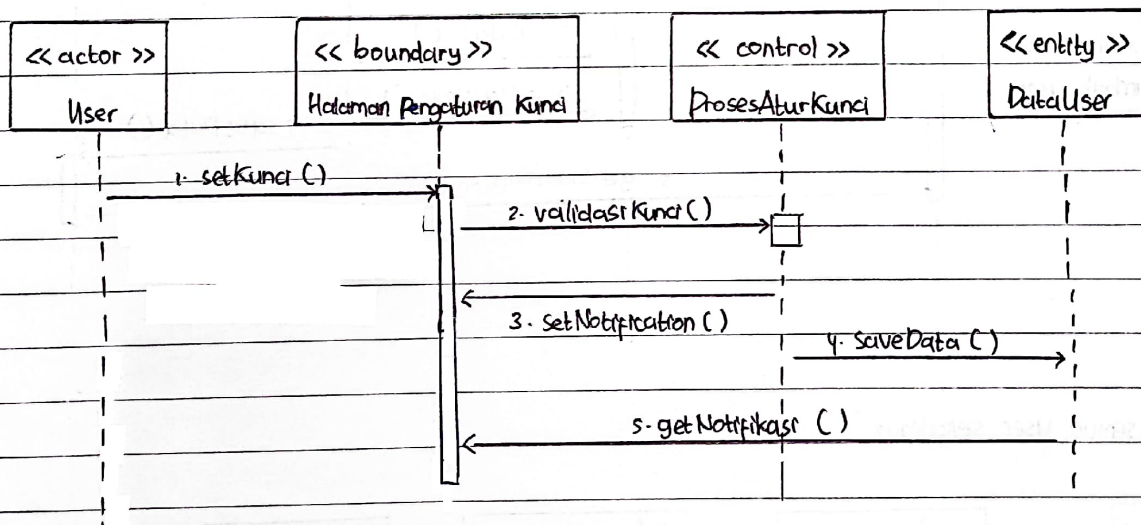 << actor >>
User
<< boundary >>
Halaman Pengaturan Kunci
<< control >>
ProsesAturKunci
<< entity >>
DataUser
1. setKunci ()
2. validasiKunci ()
3. setNotification ()
4. saveData ()
5. getNotifikasi ()